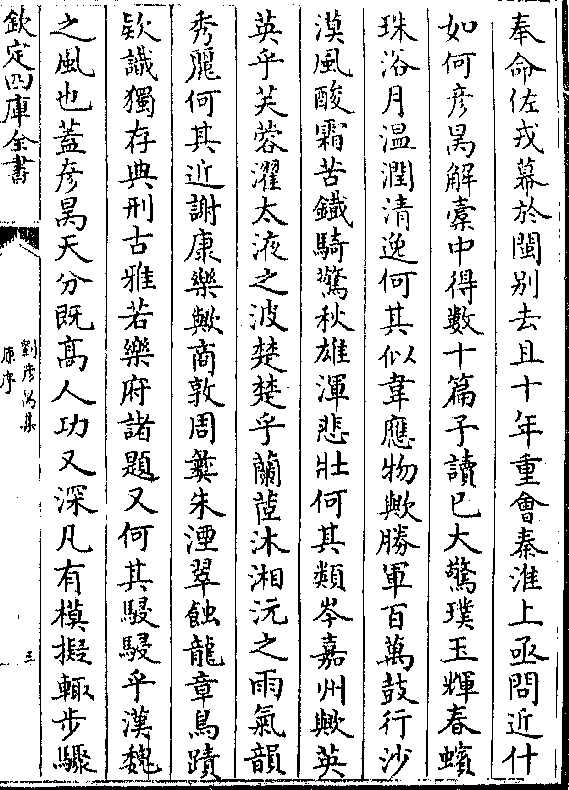 奉命佐戎幕於閩别去且十年重會秦淮上亟問近什
如何彦昺解橐中得數十篇予讀已大驚璞玉輝春蠙
珠浴月温潤清逸何其似韋應物歟勝軍百萬鼓行沙
漠風酸霜苦鐡騎驚秋雄渾悲壯何其類岑嘉州歟英
英乎芙蓉濯太液之波楚楚乎蘭茝沐湘沅之雨氣韻
秀麗何其近謝康樂歟商敦周彝朱湮翠蝕龍章鳥蹟
欵識獨存典刑古雅若樂府諸題又何其駸駸乎漢魏
之風也葢彦昺天分既髙人功又深凡有模擬輙歩驟
欽定四庫全書
劉彦昺集
原序
三